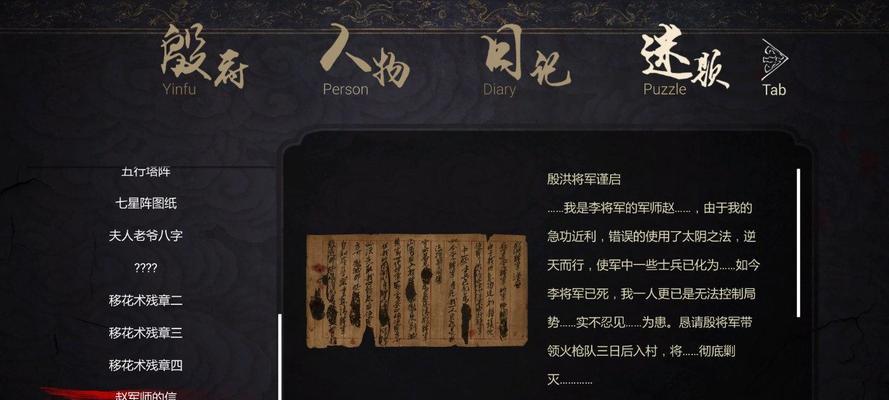 殷府
人物
日记
迷题
Yinfu
Person
Diary
Puzzle
Tab
五行塔阵
七星阵图纸
夫人老爷八字
????
移花术残章二
移花术残章三
移花术残章四
赵军师的信
殷洪将军谨启
……我是李将军的军师赵……，由于我的
急功近利，错误的使用了太阴之法，逆
天而行，使军中一些士兵已化为……如今
李将军已死，我一人更已是无法控制局
势……实不忍见……为患。恳请殷将军带
领火枪队三日后入村，将……彻底剿
灭…………